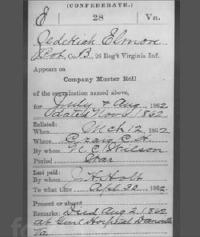 (CONFEDERATE.)
E 28 Va.
Zedekiah Elmore
Co. B, 28 Reg't Virginia Inf.
Appears on
Company Muster Roll
of the organization named above,
for July & Aug, 1862
dated Nov 1 1862
Enlisted:
When Mch 12, 1862
Where Craig C.H.
By whom Wilson
Period War
Last paid:
By whom Holt
To what time Apl 30, 1862
Present or absent
Remarks: Died Aug 2 1862
at Genl Hospital Danville
Va.